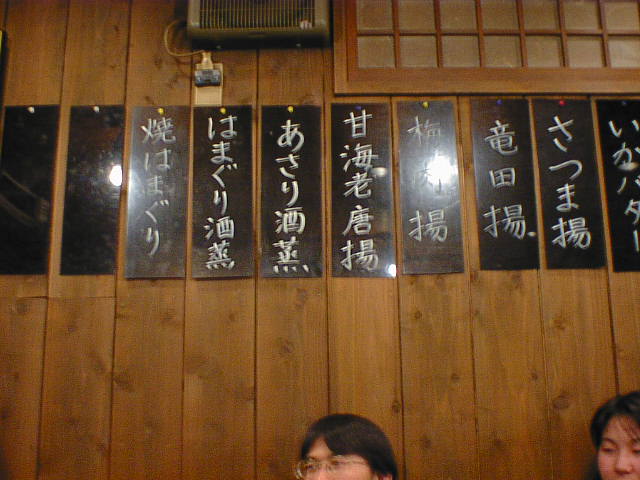 いかバター
さつま揚
竜田揚
梅肉揚
甘海老唐揚
あさり酒蒸
はまぐり酒蒸
焼はまぐり